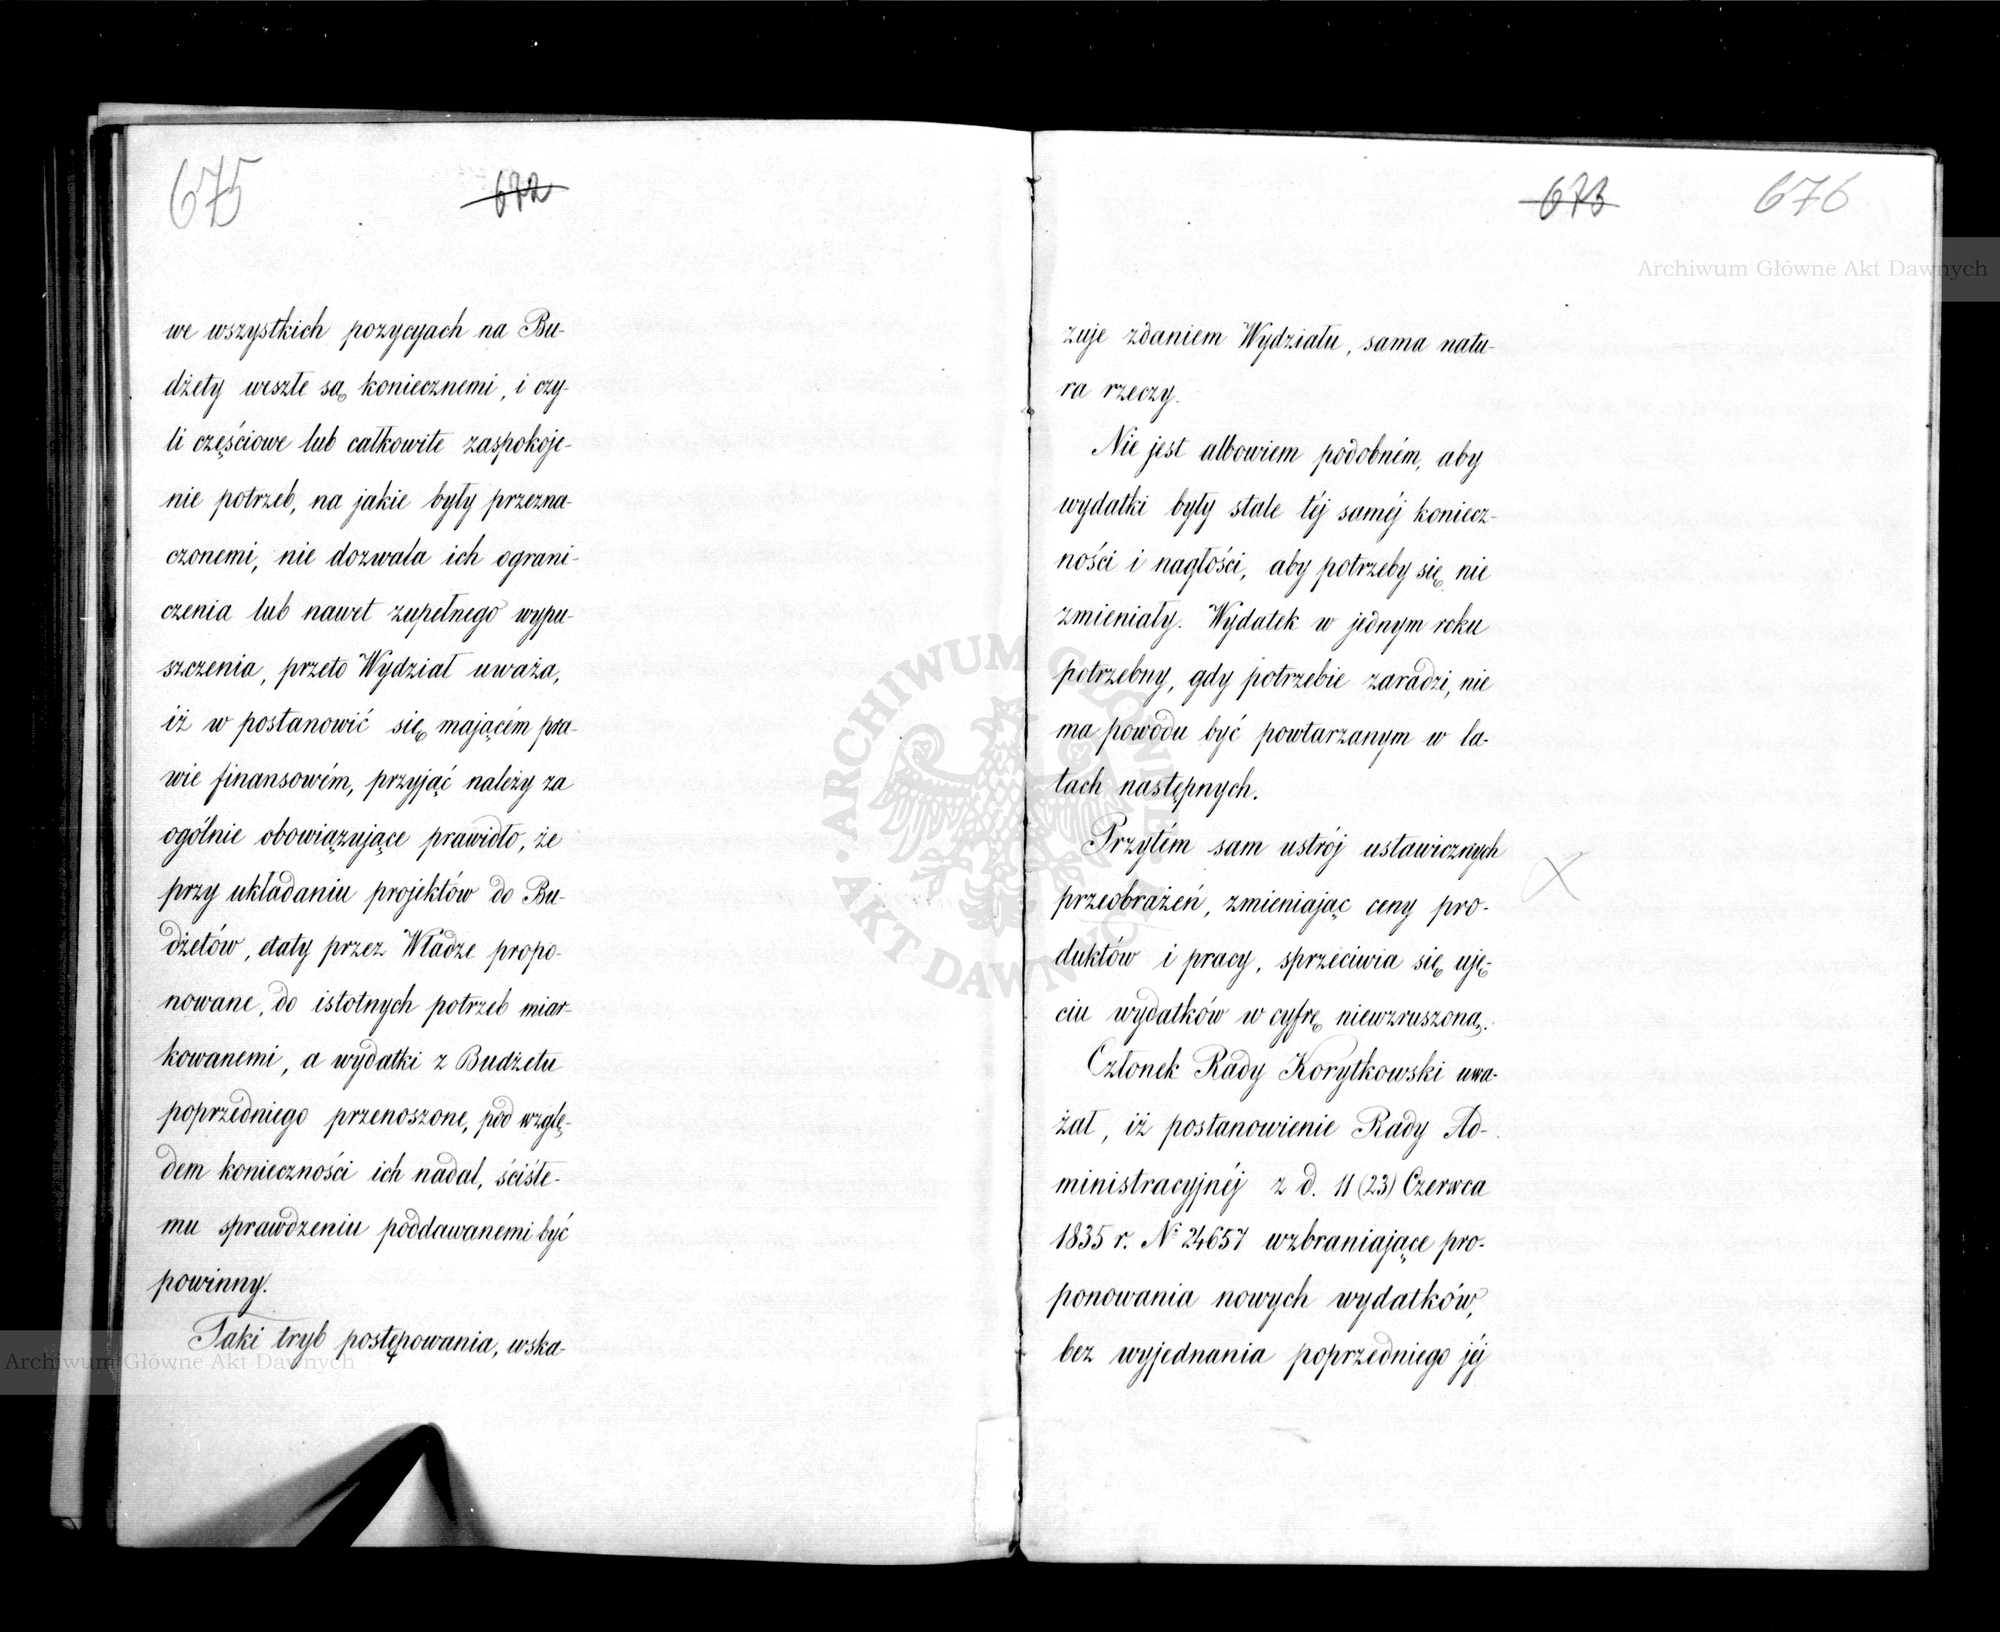 675
672
we wszystkich pozycyach na Bu-
dżety weszłe są koniecznemi, i czy-
li częściowe lub całkowite zaspokoje-
nie potrzeb, na jakie były przezna-
czonemi, nie dozwala ich ograni-
czenia lub nawet zupełnego wypu-
szczenia, przeto Wydział uważa,
iż w postanowić się mającém pra-
wie finansowém, przyjąć należy za
ogólnie obowiązujące prawidło, że
przy układaniu projektów do Bu-
dżetów, etaty przez Władze propo-
nowane, do istotnych potrzeb miar-
kowanemi, a wydatki z Budżetu
poprzedniego przenoszone, pod wzglę-
dem konieczności ich nadal, ściśłe-
mu sprawdzeniu poddawanemi być
powinny.
Taki tryb postępowania, wska-
673
676
zuje zdaniem Wydziału, sama natu-
ra rzeczy.
Nie jest albowiem podobném, aby
wydatki były stale téj saméj koniecz-
ności i nagłości, aby potrzeby się nie
zmieniały. Wydatek w jednym roku
potrzebny, gdy potrzebie zaradzi, nie
ma powodu być powtarzanym w la-
tach następnych.
Przytém sam ustrój ustawicznych
przeobrażeń, zmieniając ceny pro-
duktów i pracy, sprzeciwia się uję-
ciu wydatków w cyfrę niewzruszoną.
Członek Rady Korytkowski uwa-
żał, iż postanowienie Rady Ad-
ministracyjnéj z d. 11 (23) Czerwca
1835 r. № 24657 wzbraniające pro-
ponowania nowych wydatków,
bez wyjednania poprzedniego jéj
Archiwum Główne Akt Dawnych
Archiwum Główne Akt Dawnych
ARCHIWUM GŁÓWNE • AKT DAWNYCH •